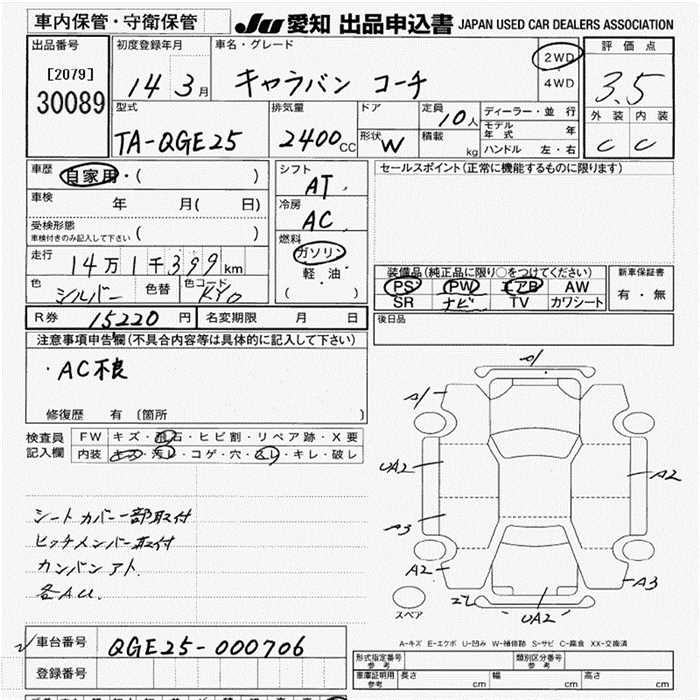 車内保管・守衛保管 JU 愛知 出品申込書 JAPAN USED CAR DEALERS ASSOCIATION
出品番号 初度登録年月 車名・グレード 評価点
[2079] 14 3月 キャラバン コーチ 2WD 3.5
30089 4WD
型式 排気量 ドア 定員 ディーラー・並行 外装 内装
TA-QGE25 2400cc 形状 W 10人 モデル年式 年 C C
積載 kg ハンドル 左・右
車歴 自家用・( ) シフト AT セールスポイント(正常に機能するものに限ります)
車検 年 月( 日) 冷房 AC
受検形態
車検付きのみ記入して下さい ( ) 燃料 ガソリン
走行 14万1千399km 軽・油 装備品(純正品に限り○をつけてください) 新車保証書
色 シルバー 色替 色コード KY0 ( ) PS PW エアB AW 有・無
SR ナビ TV カワシート
R券 15220円 名変期限 月 日 後日品
注意事項申告欄(不具合内容等は具体的に記入して下さい)
・AC不良
修復歴 有 〔箇所 〕
検査員 FW キズ・飛石・ヒビ割・リペア跡・X要
記入欄 内装 キズ・汚レ・コゲ・穴・スレ・キレ・破レ
シートカバー一部取付
ヒッチメンバー取付
カンバンアト
各AU.
A1
A1
UA2 A2
A3
A2 A3
スペア UA2
A-キズ E-エクボ U-凹み W-補修跡 S-サビ C-腐食 XX-交換済
車台番号 QGE25-000706
登録番号
形式指定番号 参考 類別区分番号 参考
車庫証明用 参考 長さ cm 幅 cm 高さ cm